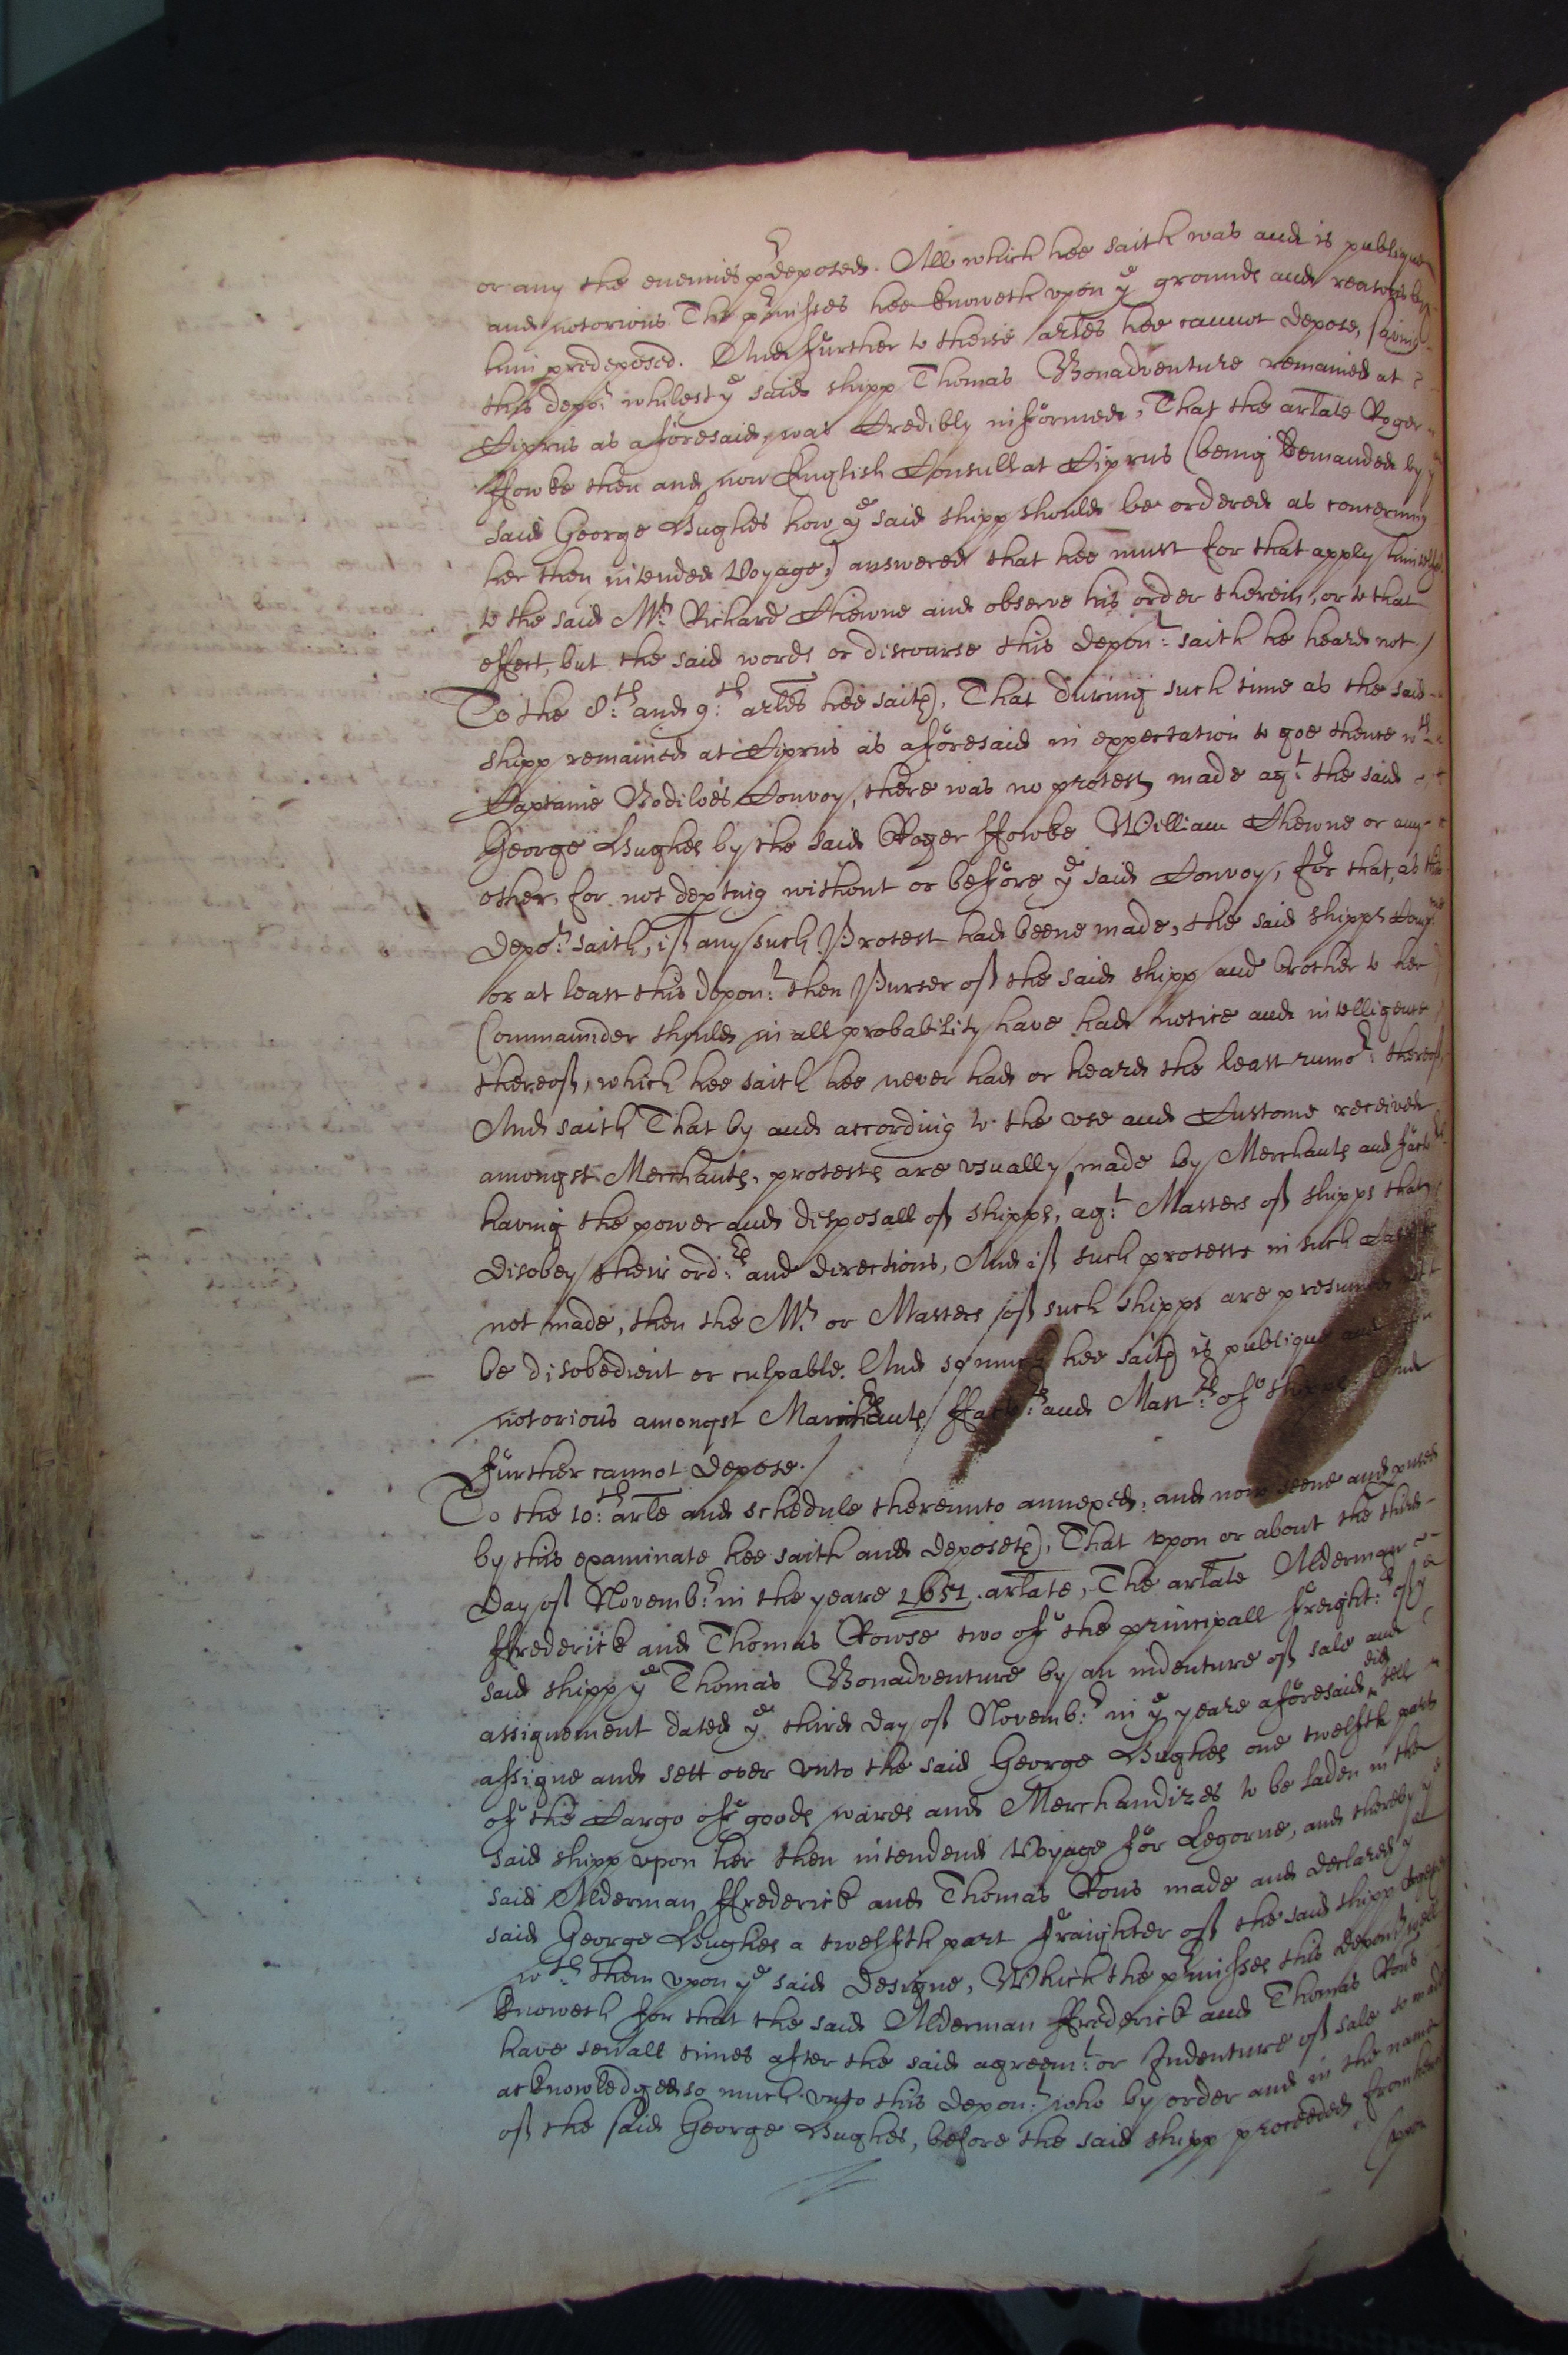 or any the enemies p:rdeposed. All which hee saith was and is publique
and notorious The p:rmisses hee knoweth vpon ye grounds and reasons by
him predeposed. And further to theise arles hee cannot depose, saving
this depo:t whilest ye said shipp Thomas Bonadventure remained at
Ciprus as aforesaid, was Credibly informed, That the arlate Roger
ffowke then and now English Consull at Ciprus (being demanded by ye
said George Hughes how ye said shipp should be ordered as concerning
her then intended Voyage,) answered that hee must for that apply himselfe
to the said Mr: Richard Chewne and observe his order therein, or to that
effect, but the said words or discourse this depon:t saith he heard not /
To the 8:th and 9:th arles hee saith, That during such time as the said
shipp remained at Ciprus as aforesaid in expectation to goe thence wth
Captaine Bodiloes Convoy, there was no protest made ag:t the said
George Hughes by the said Roger ffowke William Chewne or any
other, for not depting without or before ye said Convoy, for that, as this
depo:t saith, if any such Protest had beene made, the said shipps Comp:
or at least this depon:t then Purser of the said shipp and brother to her
Commaunder should in all probability have had notice and intelligence
thereof, which hee saith hee never had or heard the least rumo:r thereof
And saith That by and according to the vse and Custome received
amongst Merchants, protests are vsually made by Merchants and fact:rs
having the power and disposall of shipps, ag:t Masters of shipps that
disobey their ord:rs and directions, And if such protests in such Case be
not made, then the Mr: or Masters of such shipps are presumed not
be disobedient or culpable. And so much hee saith is publique and
notorious amongst Marchants ffact:rs and Mast:rs of shipps And
further cannot depose. /
To the 10:th arle and schedule thereunto annexed, and now seene and pused
by this examinate hee saith and deposeth, That vpon or about the third
day of Novemb:r in the yeare 1651 arlate, The arlate Alderman
ffrederick and Thomas Rowse two of the principall freight:rs of ye
said shipp ye Thomas Bonadventure by an indenture of sale and
assignement dated ye third day of Novemb:r in ye yeare aforesaid, did sell
assigne and sett over vnto the said George Hughes one twelfth part
of the Cargo of goods wares and Merchandizes to be laden in the
said shipp vpon her then intendend Voyage for Legorne, and thereby ye
said Alderman ffrederick and Thomas Rous made and declared ye
said George Hughes a twelfth part fraighter of the said shipp
wth: them vpon ye said designe, Which the p:rmisses this depon:t well
knoweth for that the said Alderman ffrederick and Thomas Rous
have seuall times after the said agreem:t or Indenture of sale so made
acknowledged so much vnto this depon:t who by order and in the name
of the said George Hughes, before the said shipp proceeded from hence
vpon